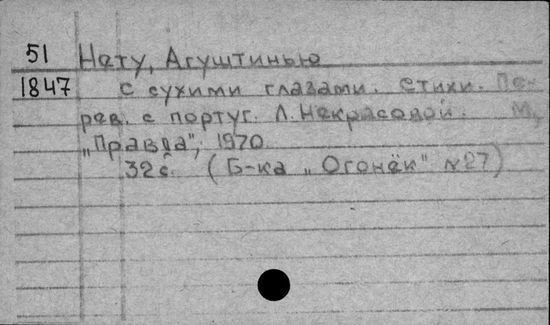 51 Нету, Агуштинью
1847 с сухими глазами. Стихи. Пе-
рев. с португ. Л. Некрасовой. М,
„Правда", 1970.
32 с. (Б-ка „Огонёк" №27)